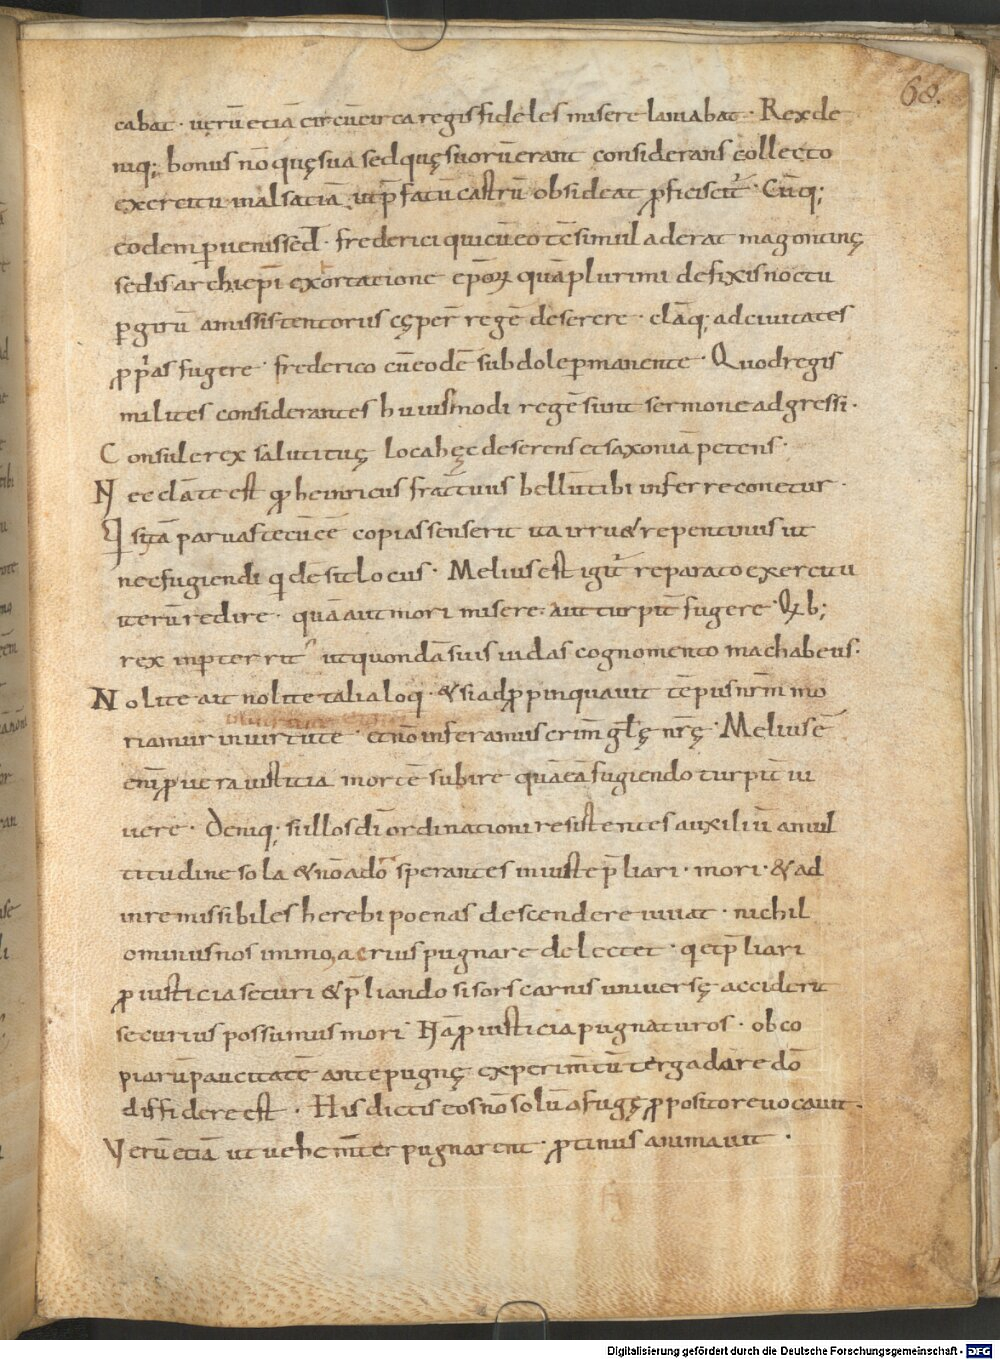 68.
cabat · uerū etiā circūcirca regis fideles misere laniabat · Rex de
niq; bonus nō quę sua sed quę suorū erant considerans collecto
exercitu in alsatiā ut p̄fatū castrū obsideat ꝓficiscit᷑ · Cūq;
eodem ꝑuenissed · frederici qui cū eo tē simul aderat magontinę
sedis archiepi exortatione epōꝝ quā plurimi defixis noctu
ꝑ girū amissis tentoriis cęper̄ regē deserere · clāq; ad ciuitates
ꝓprias fugere · frederico cū eodē subdole permanente · Quod regis
milites considerantes huiusmodi regē sunt sermone adgressi ·
Consule rex saluti tuę loca hęc deserens et saxoniā petens ·
Nec clā te est qđ heinricus frat̄ tuus bellū tibi inferre conetur ·
Qui si tā paruas tecū ēē copias senserit ita irruet repentinus ut
nec fugiendi qdē sit locus · Melius est igit᷑ reparato exercitu
iterū redire · quā aut mori misere · aut turpit̄ fugere · Qꝝ b;
rex inperterrit᷑ ut quondā suis iudas cognomento machabeus ·
Nolite ait nolite talia loqi · & si adꝓpinquauit tēpus nrm mo
riamur in uirtute · et nō inferamus crim̄ glę nrę · Melius ē
enī ꝓ uera iusticia mortē subire quā eā fugiendo turpit̄ ui
uere · Deniq; si illos dī ordinationi resistentes auxiliū a mul
titudine sola & nō a dō sperantes iniuste p̄liari · mori · & ad
inremissibiles herebi poenas descendere iuuat · nichil
ominus nos immo acrius pugnare delectet · qi et p̄liari
ꝓ iusticia securi & p̄liando si sors carnis uniuersę acciderit
securius possumus mori Nā ꝓ iusticia pugnaturos · ob co
piarū paucitatē ante pugnę experimtū terga dare dō
diffidere est · His dictis eos nō solū a fugę ꝓposito reuocauit ·
Verū etiā ut uehem̄ter pugnarent · ꝓtinus animauit ·
Digitalisierung gefördert durch die Deutsche Forschungsgemeinschaft - DFG